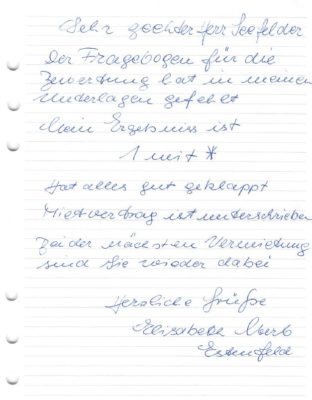 Sehr geehrter Herr Seefelder
Der Fragebogen für die
Bewertung hat in meinen
Unterlagen gefehlt
Mein Ergebniss ist
1 mit *
Hat alles gut geklappt
Mietvertrag ist unterschrieben
Bei der nächsten Vermietung
sind Sie wieder dabei
Herzliche Grüße
Elisabeth
Estenfeld